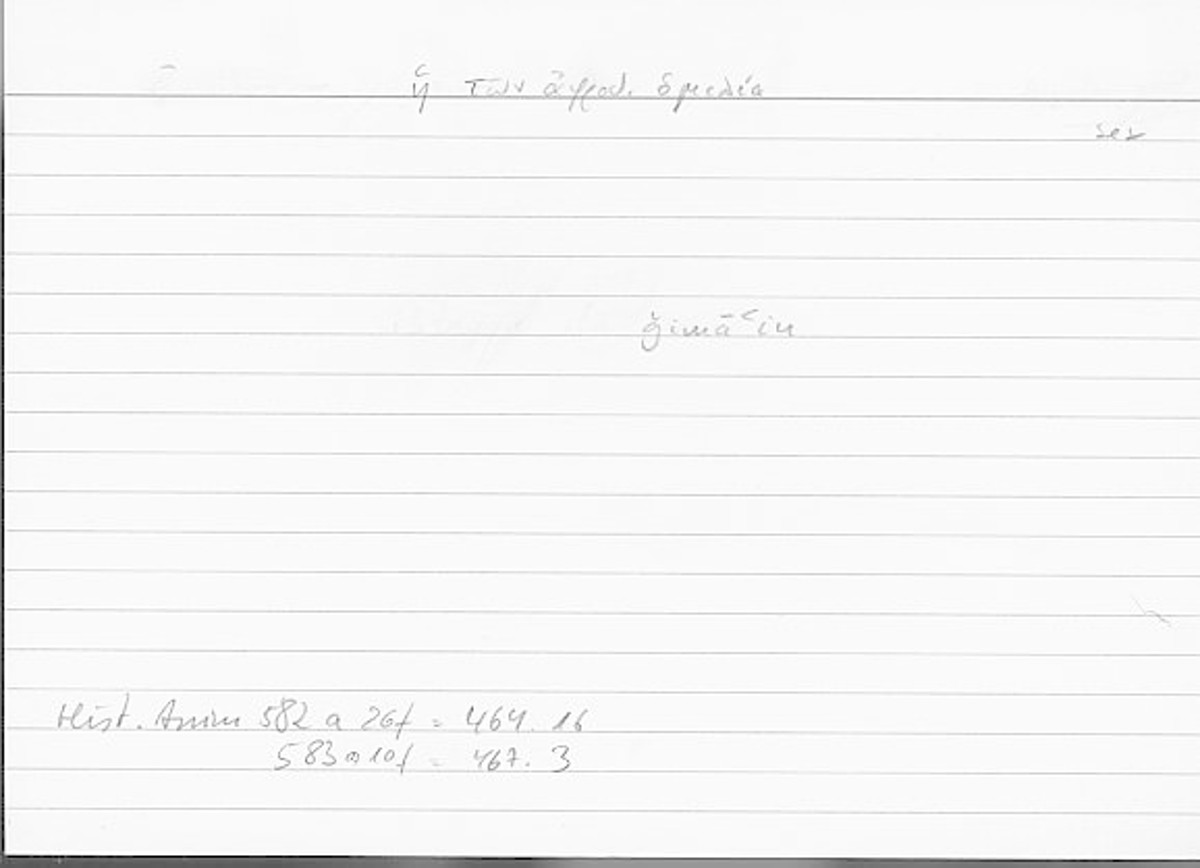 ἡ τῶν ἀφροδ. ὁμιλία
sex
ǧimāʿin
Hist. Anim 582 a 26f = 464. 16
583 a 10f = 467. 3